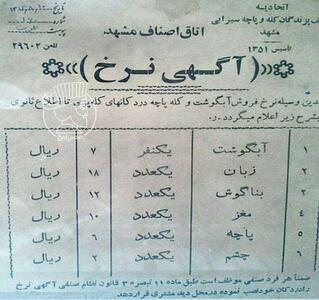 اتحادیه
پزندگان کله و پاچه سیرابی
مشهد
تاسیس ۱۳۵۱
اتاق اصناف مشهد
تلفن ۲۹۶۰۲
(آگهی نرخ)
بدین وسیله نرخ فروش آبگوشت و کله پاچه در دکانهای کله پزی تا اطلاع ثانوی
بشرح زیر اعلام میگردد .
۱ آبگوشت یکنفر ۷ ریال
۲ زبان یکعدد ۱۸ ریال
۳ بناگوش یکعدد ۱۲ ریال
۴ مغز یکعدد ۱۰ ریال
۵ پاچه یکعدد ۶ ریال
۶ چشم یکعدد ۲ ریال
ضمناً هر فرد صنفی موظف است طبق ماده ۱۱ تبصره ۳ قانون نظام صنفی آگهی نرخ
را در دکان خود نصب نموده در محل دید مشتری قرار دهد